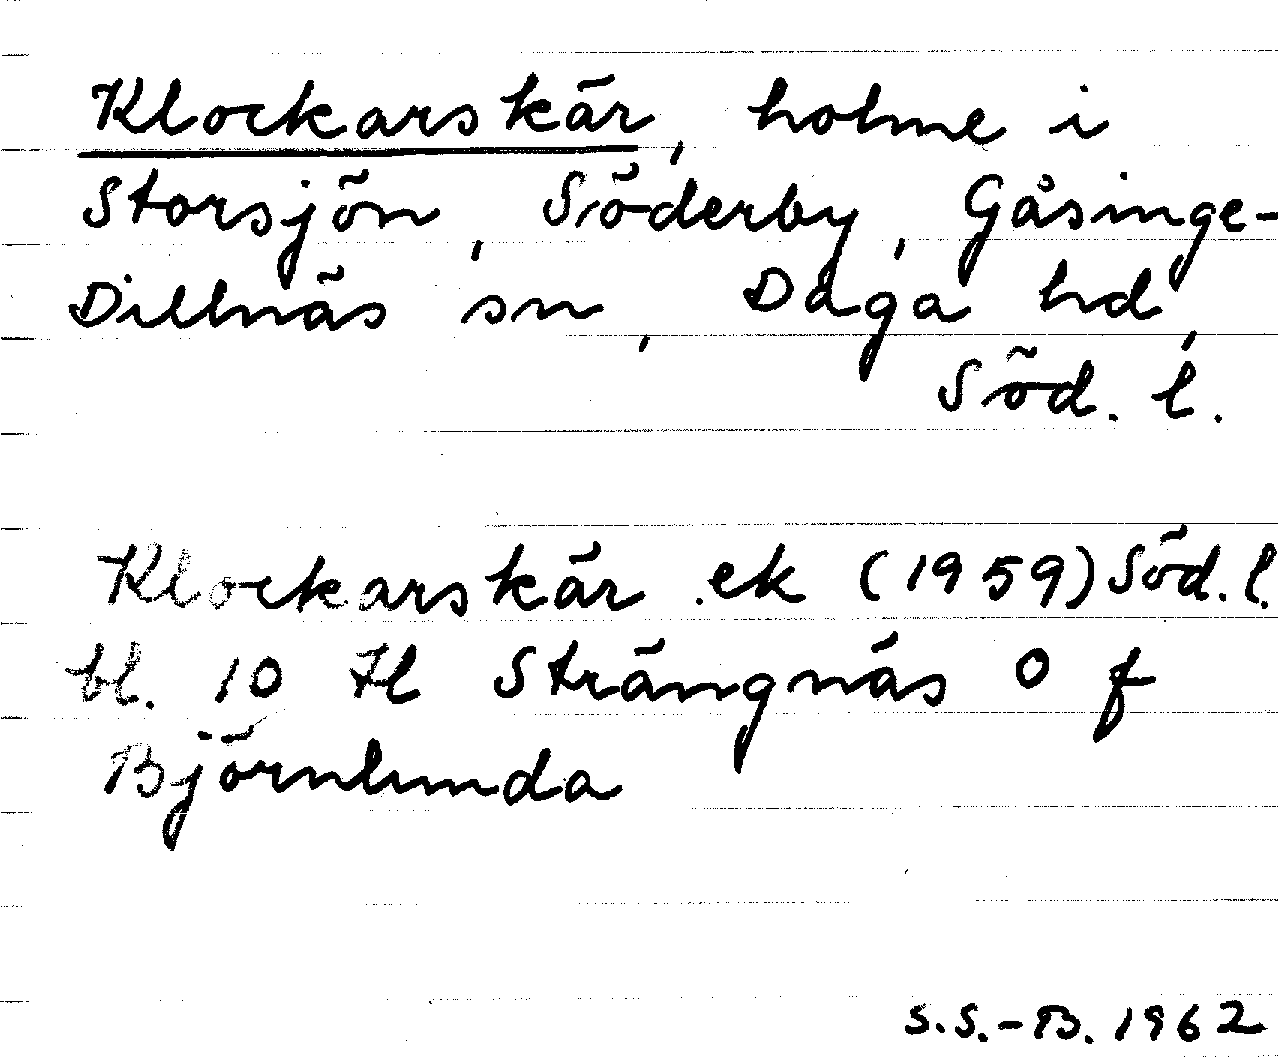 Klockarskär, holme i
Storsjön, Söderby, Gåsinge-
Dillnäs sn, Daga hd,
Söd. l.
Klockarskär ek (1959) Söd. l.
bl. 10 Hl Strängnäs O f
Björnlunda
S.S.-B. 1962